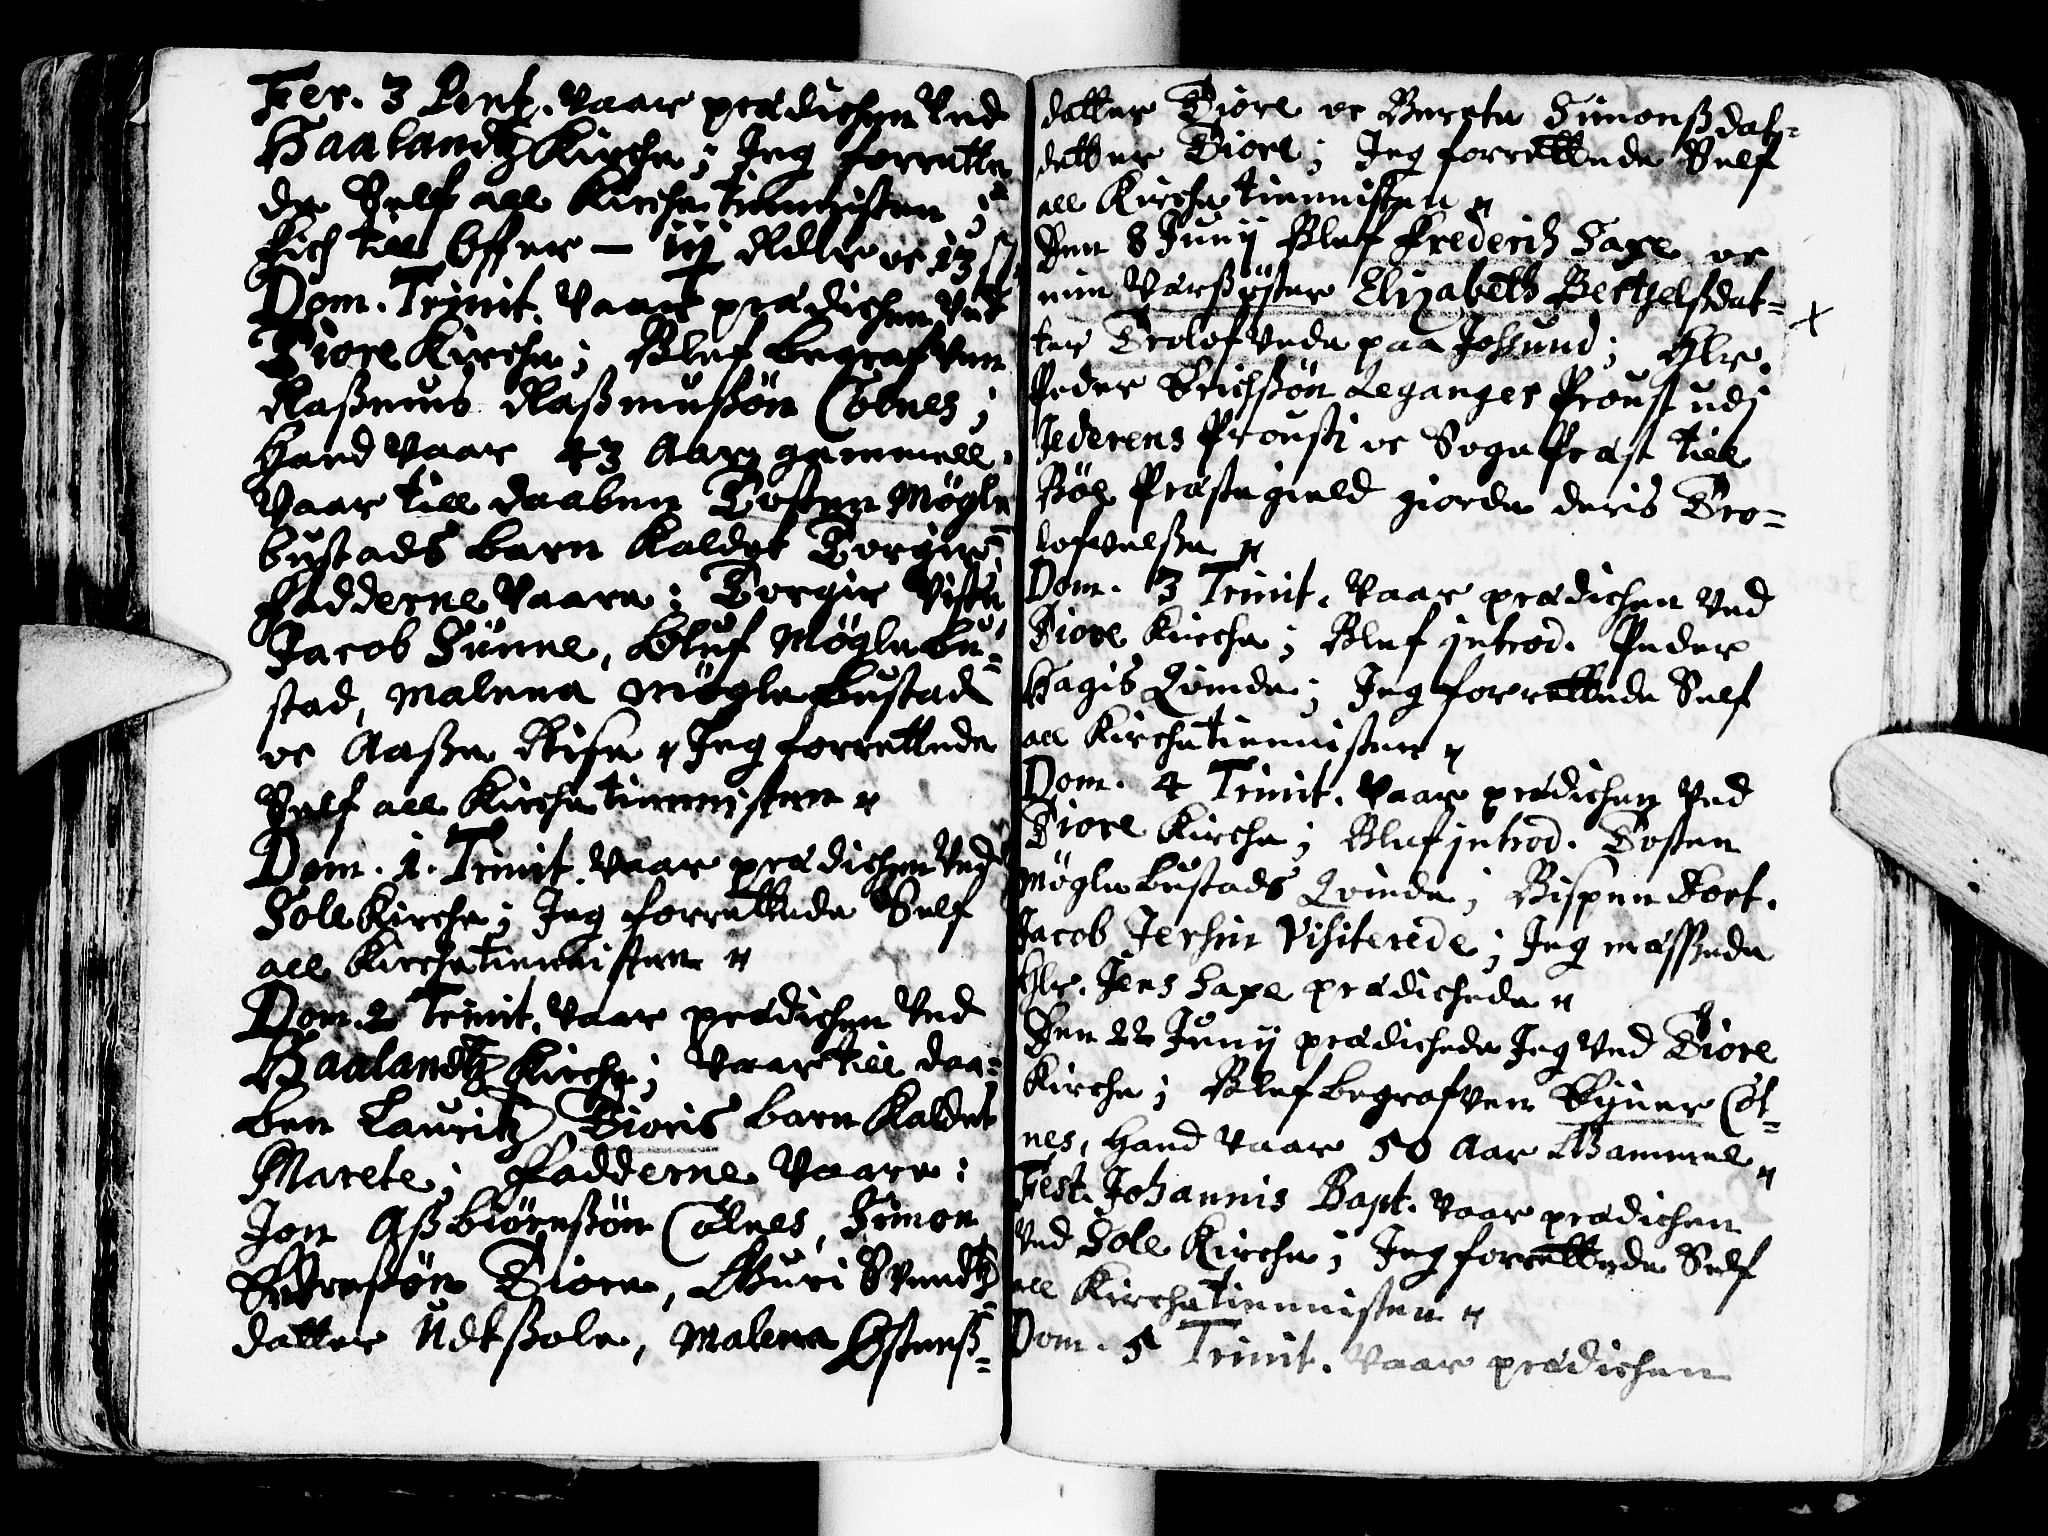 Fer. 3 Pent. Vaar prædichen Ved
Haalandtz Kirche; Jeg forrette
de Self all Kirche tiennisten;
Fich till Offer — iij Rdlr oc 13 ß.
Dom. Trinit. Vaar prædichen Ved
Tiore Kirche; Blef begrafven
Rasmus Rasmusßön Colnes;
Hand Vaar 43 Aarg gammell.
Vaar till daaben Tosten Mögle
bustads barn Kaldet Torgier
Fadderne Vaare: Torgir Viste
Jacob Sünne, Oluf Möglebu-
stad, Malena Möglebustad
oc Aaße Rise " Jeg forrettede
Self all Kirche tiennisten "
Dom. 1. Trinit. Vaar prædichen Ved
Sole Kirche; Jeg forrettede Self
all Kirche tiennisten "
Dom. 2 Trinit. Vaar prædichen Ved
Haalandtz Kirche; Vaar till daa-
ben Lauritz Tioris barn Kaldet
Marete; Fadderne Vaare:
Jon Aßbiörnßön Colnes, Simon
Tiore, Guri Svendtz
datter Udtßole, Malena Ostenß-
datter Tiore oc Bereta Simonßdat-
datter Tiore; Jeg forrettede Self
all Kirche tiennisten "
Den 8 Junij Blef Frederih Saxe oc
min Varßöster Elizabeth Berthelßdat-
ter Trolofvede paa Joßund; Hlr.
Peder Erichßön Leganger Proust udj
Jederens Prousti oc Sogne Præst till
Böe Præstegield giorde deris Tro-
lofvelße "
Dom. 3 Trinit. Vaar prædichen Ved
Tiore Kirche; Blef introd. Peder
Hagis Qvinde; Jeg forrettede Self
all Kirche tiennisten "
Dom. 4 Trinit. Vaar prædichen Ved
Tiore Kirche; Blef introd. Tosten
Möglebustads Qvinde; Bispen Doct.
Jacob Jersin Visiterede; Jeg mæssede
Hlr. Jens Saxe prædichede "
Den 22 Junij prædichede Jeg Ved Tiore
Kirche; Blef begrafven Col-
nes, Hand Vaar 50 Aar Gammel "
Fest. Johannis Bapt. Vaar prædichen
Ved Sole Kirche; Jeg forrettede Self
all Kirche tiennisten "
Dom. 5 Trinit. Vaar prædichen